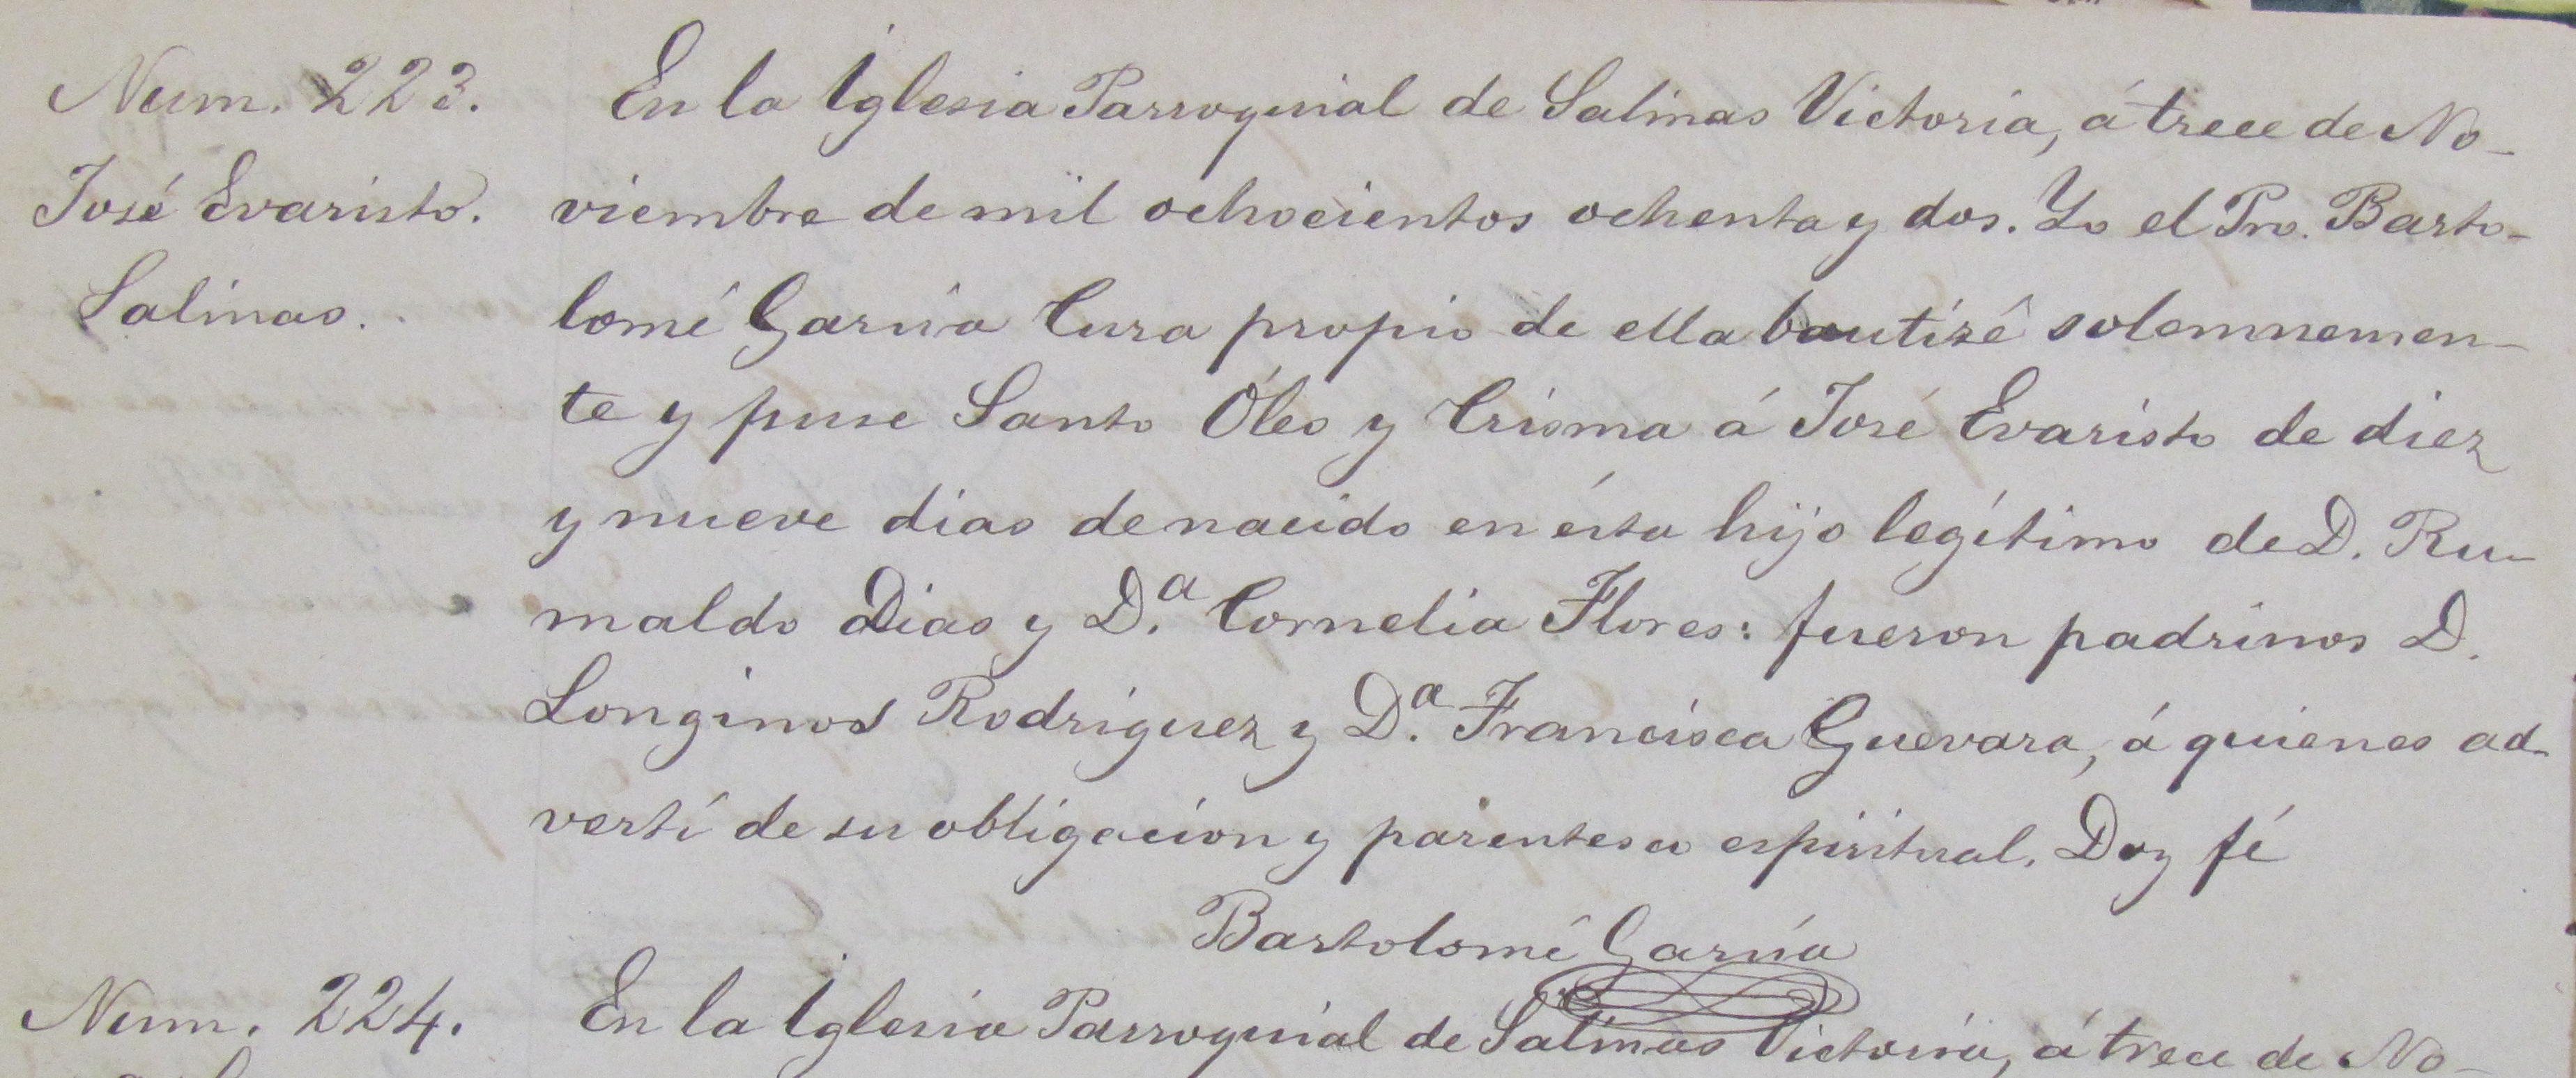 Num. 223.
José Evaristo.
Salinas.
En la Iglesia Parroquial de Salinas Victoria, á trece de No-
viembre de mil ochocientos ochenta y dos. Yo el Pro. Barto-
lomé García Cura propio de ella bautizé solemnemen-
te y puse Santo Óleo y Crisma á José Evaristo de diez
y nueve dias de nacido en ésta hijo legítimo de D. Ru-
maldo Dias y D.ª Cornelia Flores: fueron padrinos D.
Longinos Rodriguez y D.ª Francisca Guevara, á quienes ad-
vertí de su obligacion y parentesco espiritual. Doy fé
Bartolomé García
Num. 224.
En la Iglesia Parroquial de Salinas Victoria, á trece de No-